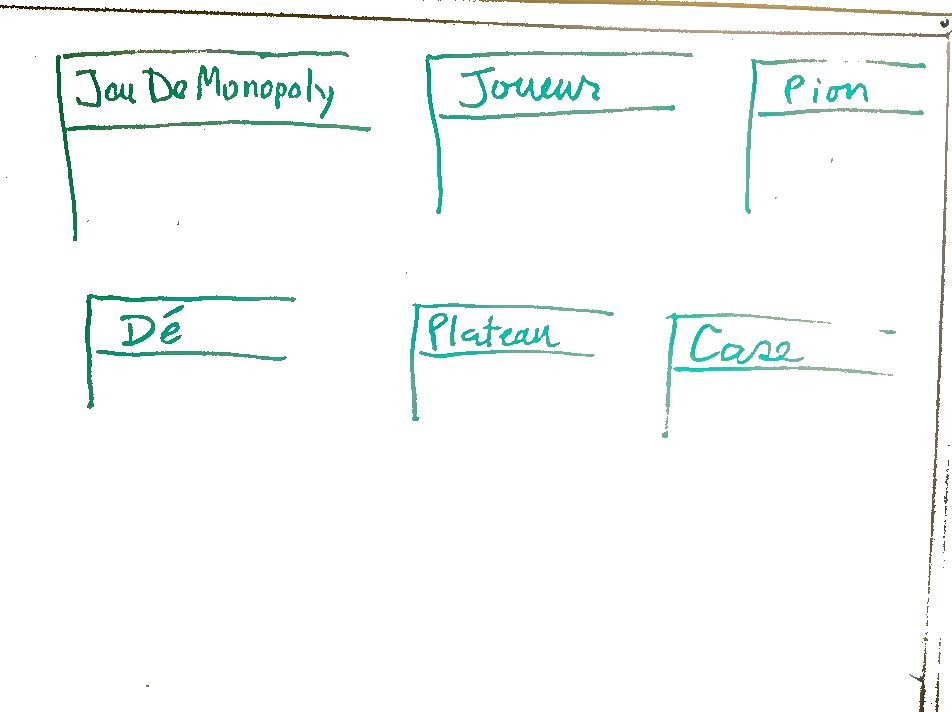 Jeu De Monopoly
Joueur
Pion
Dé
Plateau
Case